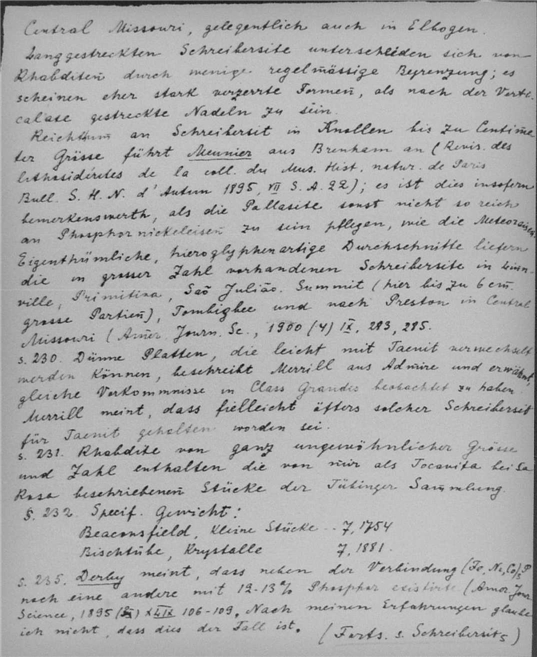 Central Missouri, gelegentlich auch in Elbogen.
Langgestreckten Schreibersite unterscheiden sich von
Rhabditen durch wenige regelmässige Begrenzung; es
scheinen eher stark verzerrte Formen, als nach der Verti-
calaxe gestreckte Nadeln zu sein.
Reichthum an Schreibersit in Knollen bis zu Centime
ter Grösse führt Meunier aus Brenham an (Revis. des
lithosidérites de la coll. du Mus. Hist. natur. de Paris
Bull. S. H. N. d'Autun 1895, VII S. A. 22); es ist dies insofern
bemerkenswerth, als die Pallasite sonst nicht so reich
an Phosphornickeleisen zu sein pflegen, wie die Meteoreisen
Eigenthümliche, hieroglyphenartige Durchschnitte liefern
die in grosser Zahl vorhandenen Schreibersite in
ville, Primitiva, Saõ Juliaõ. Summit (hier bis zu 6 cm.
grosse Partien), Tombigbee und nach Preston in Central
Missouri (Amer. Journ. Sc., 1900 (4) IX, 283, 285.
s. 230. Dünne Platten, die leicht mit Taenit verwechselt
werden können, beschreibt Merrill aus Admire und erwähnt,
gleiche Vorkommnisse in Casas Grandes beobachtet zu haben
Merrill meint, dass fielleicht öfters solcher Schreibersit
für Taenit gehalten worden sei.
s. 231. Rhabdite von ganz ungewöhnlicher Grösse
und Zahl enthalten die von mir als Tocavita bei Sa
Rosa beschriebenen Stücke der Tübinger Sammlung.
S. 232. Specif. Gewicht:
Beaconsfield, kleine Stücke -- 7,1754
Bischtübe, Krystalle 7,1881.
s. 235. Derby meint, dass neben der Verbindung (Fe, Ni, Co)3 P
noch eine andere mit 12-13% Phosphor existirt (Amer. Jour
Science, 1895 XLIX 106-109. Nach meinen Erfahrungen glaube
ich nicht, dass dies der Fall ist. (Forts. s. Schreibersit 5)